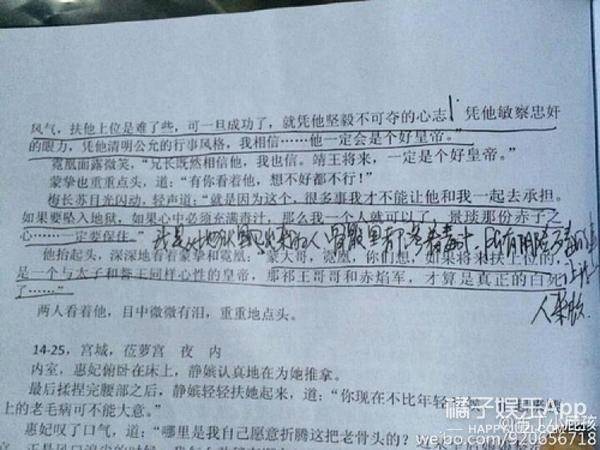 风气，扶他上位是难了些，可一旦成功了，就凭他坚毅不可夺的心志，凭他敏察忠奸
的眼力，凭他清明公允的行事风格，我相信……他一定会是个好皇帝。”
霓凰面露微笑，“兄长既然相信他，我也信。靖王将来，一定是个好皇帝。”
蒙挚也重重点头，道：“有你看着他，想不好都不行！”
梅长苏目光闪动，轻声道：“就是因为这个，很多事我才不能让他和我一起去承担。
如果要坠入地狱，如果心中必须充满毒汁，那么我一个人就可以了，景琰那份赤子之
心……一定要保住。”
我是从地狱里 的人 骨骸里都 着毒汁，所有阴险
人来
他抬起头，深深地看着蒙挚和霓凰：“蒙大哥，霓凰，你们想，如果将来扶上位的，
是一个与太子和誉王同样心性的皇帝，那祁王哥哥和赤焰军，才算是真正的白死
了……”
两人看着他，目中微微有泪，重重地点头。
14-25，宫城，芷萝宫 夜 内
内室，惠妃俯卧在床上，静嫔认真地在为她推拿。
最后揉捏完腰部之后，静嫔轻轻扶她起来，道：“你现在不比年轻
上的老毛病可不能大意。”
惠妃叹了口气，道：“哪里是我自己愿意折腾这把老骨头的？这
橘子娱乐App
HAPPYJUZI.COM
weibo.com/920656718